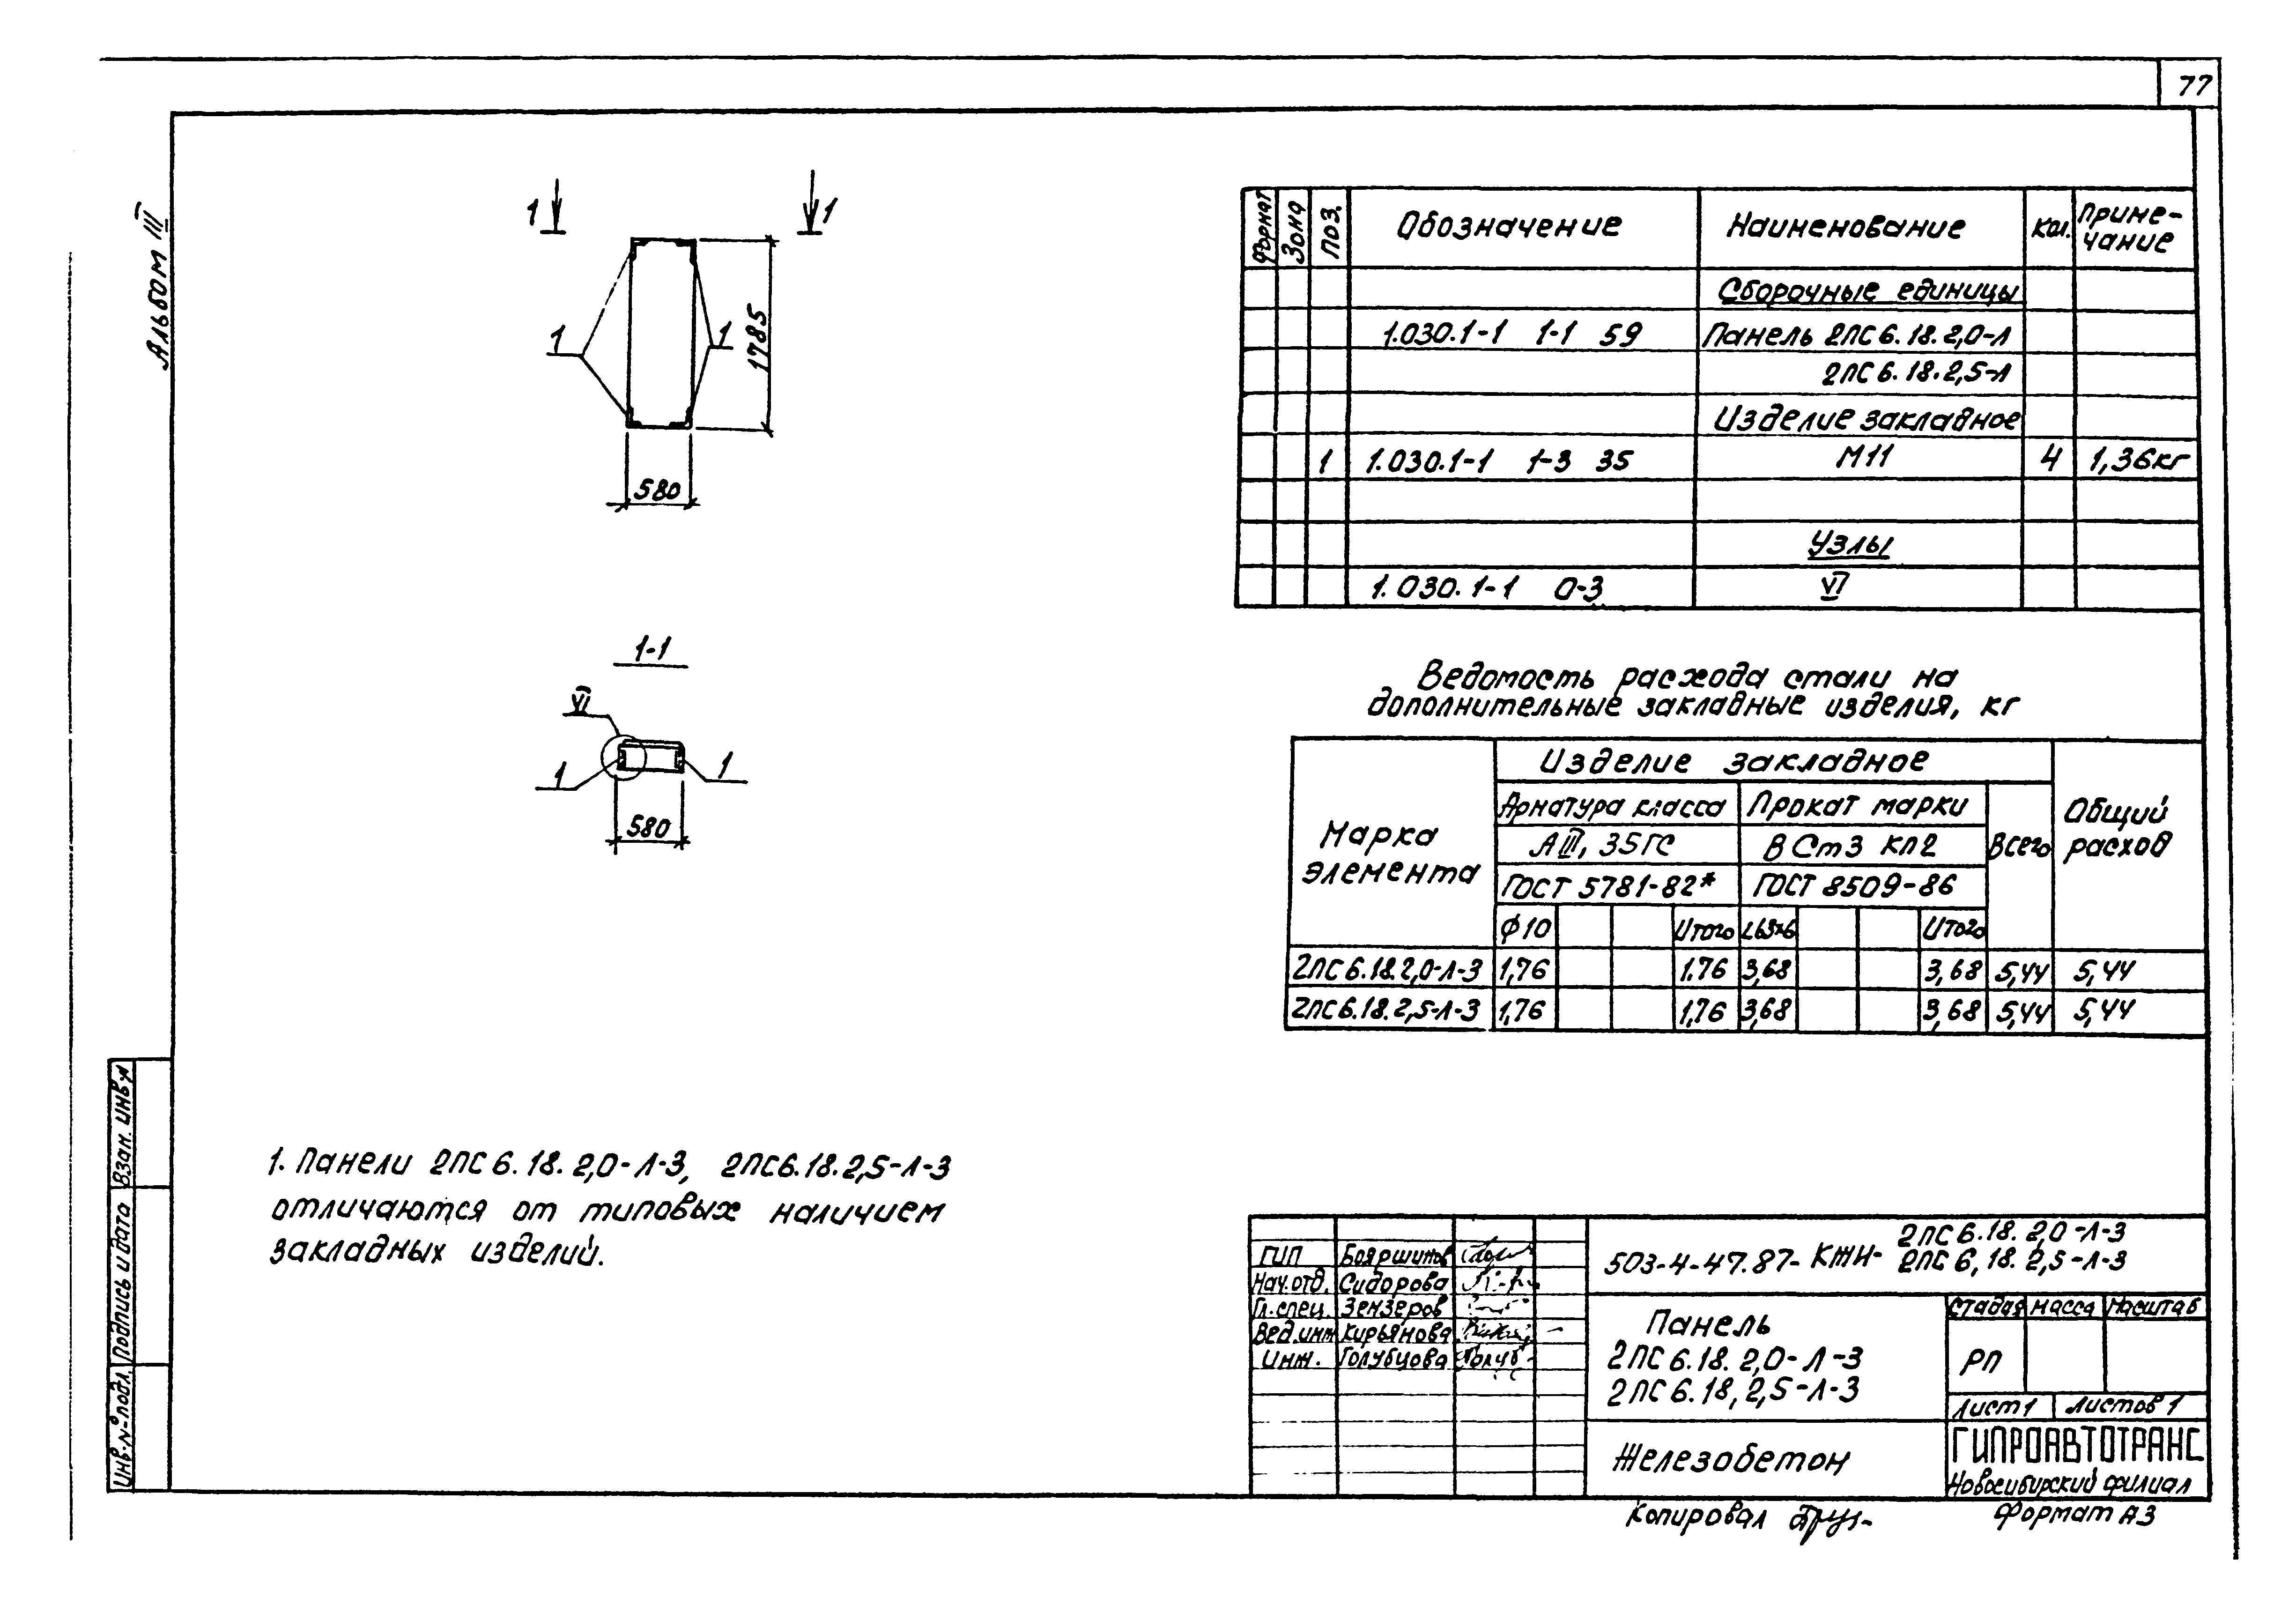 77
Альбом III
1 1
1 1
1785
580
1-1
VI
1 1
580
1. Панели 2ПС6.18.2,0-Л-3, 2ПС6.18.2,5-Л-3
отличаются от типовых наличием
закладных изделий.
Формат Зона Поз. Обозначение Наименование Кол. Приме-
чание
Сборочные единицы
1.030.1-1 1-1 59 Панель 2ПС6.18.2,0-Л
2ПС6.18.2,5-Л
Изделие закладное
1 1.030.1-1 1-3 35 М11 4 1,36кг
Узлы
1.030.1-1 0-3 VI
Ведомость расхода стали на
дополнительные закладные изделия, кг
Марка
элемента
Изделие закладное
Арматура класса Прокат марки
АIII, 35ГС ВСт3 кп2
ГОСТ 5781-82* ГОСТ 8509-86
Всего
Общий
расход
Ф10 Итого L63x6 Итого
2ПС6.18.2,0-Л-3 1,76 1.76 3,68 3,68 5,44 5,44
2ПС6.18.2,5-Л-3 1,76 1,76 3,68 3,68 5,44 5,44
Взам. инв.№
Подпись и дата
Инв.№подл.
ГИП Бояршинов
Нач.отд. Сидорова
Гл.спец. Зензеров
Вед.инж Кирьянова
Инж. Голубцова
503-4-47.87-КЖИ- 2ПС6.18.2,0-Л-3
2ПС6,18.2,5-Л-3
Панель
2ПС6.18.2,0-Л-3
2ПС6.18,2,5-Л-3
Стадия Масса Масштаб
РП
Лист1 Листов1
Железобетон
ГИПРОАВТОТРАНС
Новосибирский филиал
Копировал
Формат А3